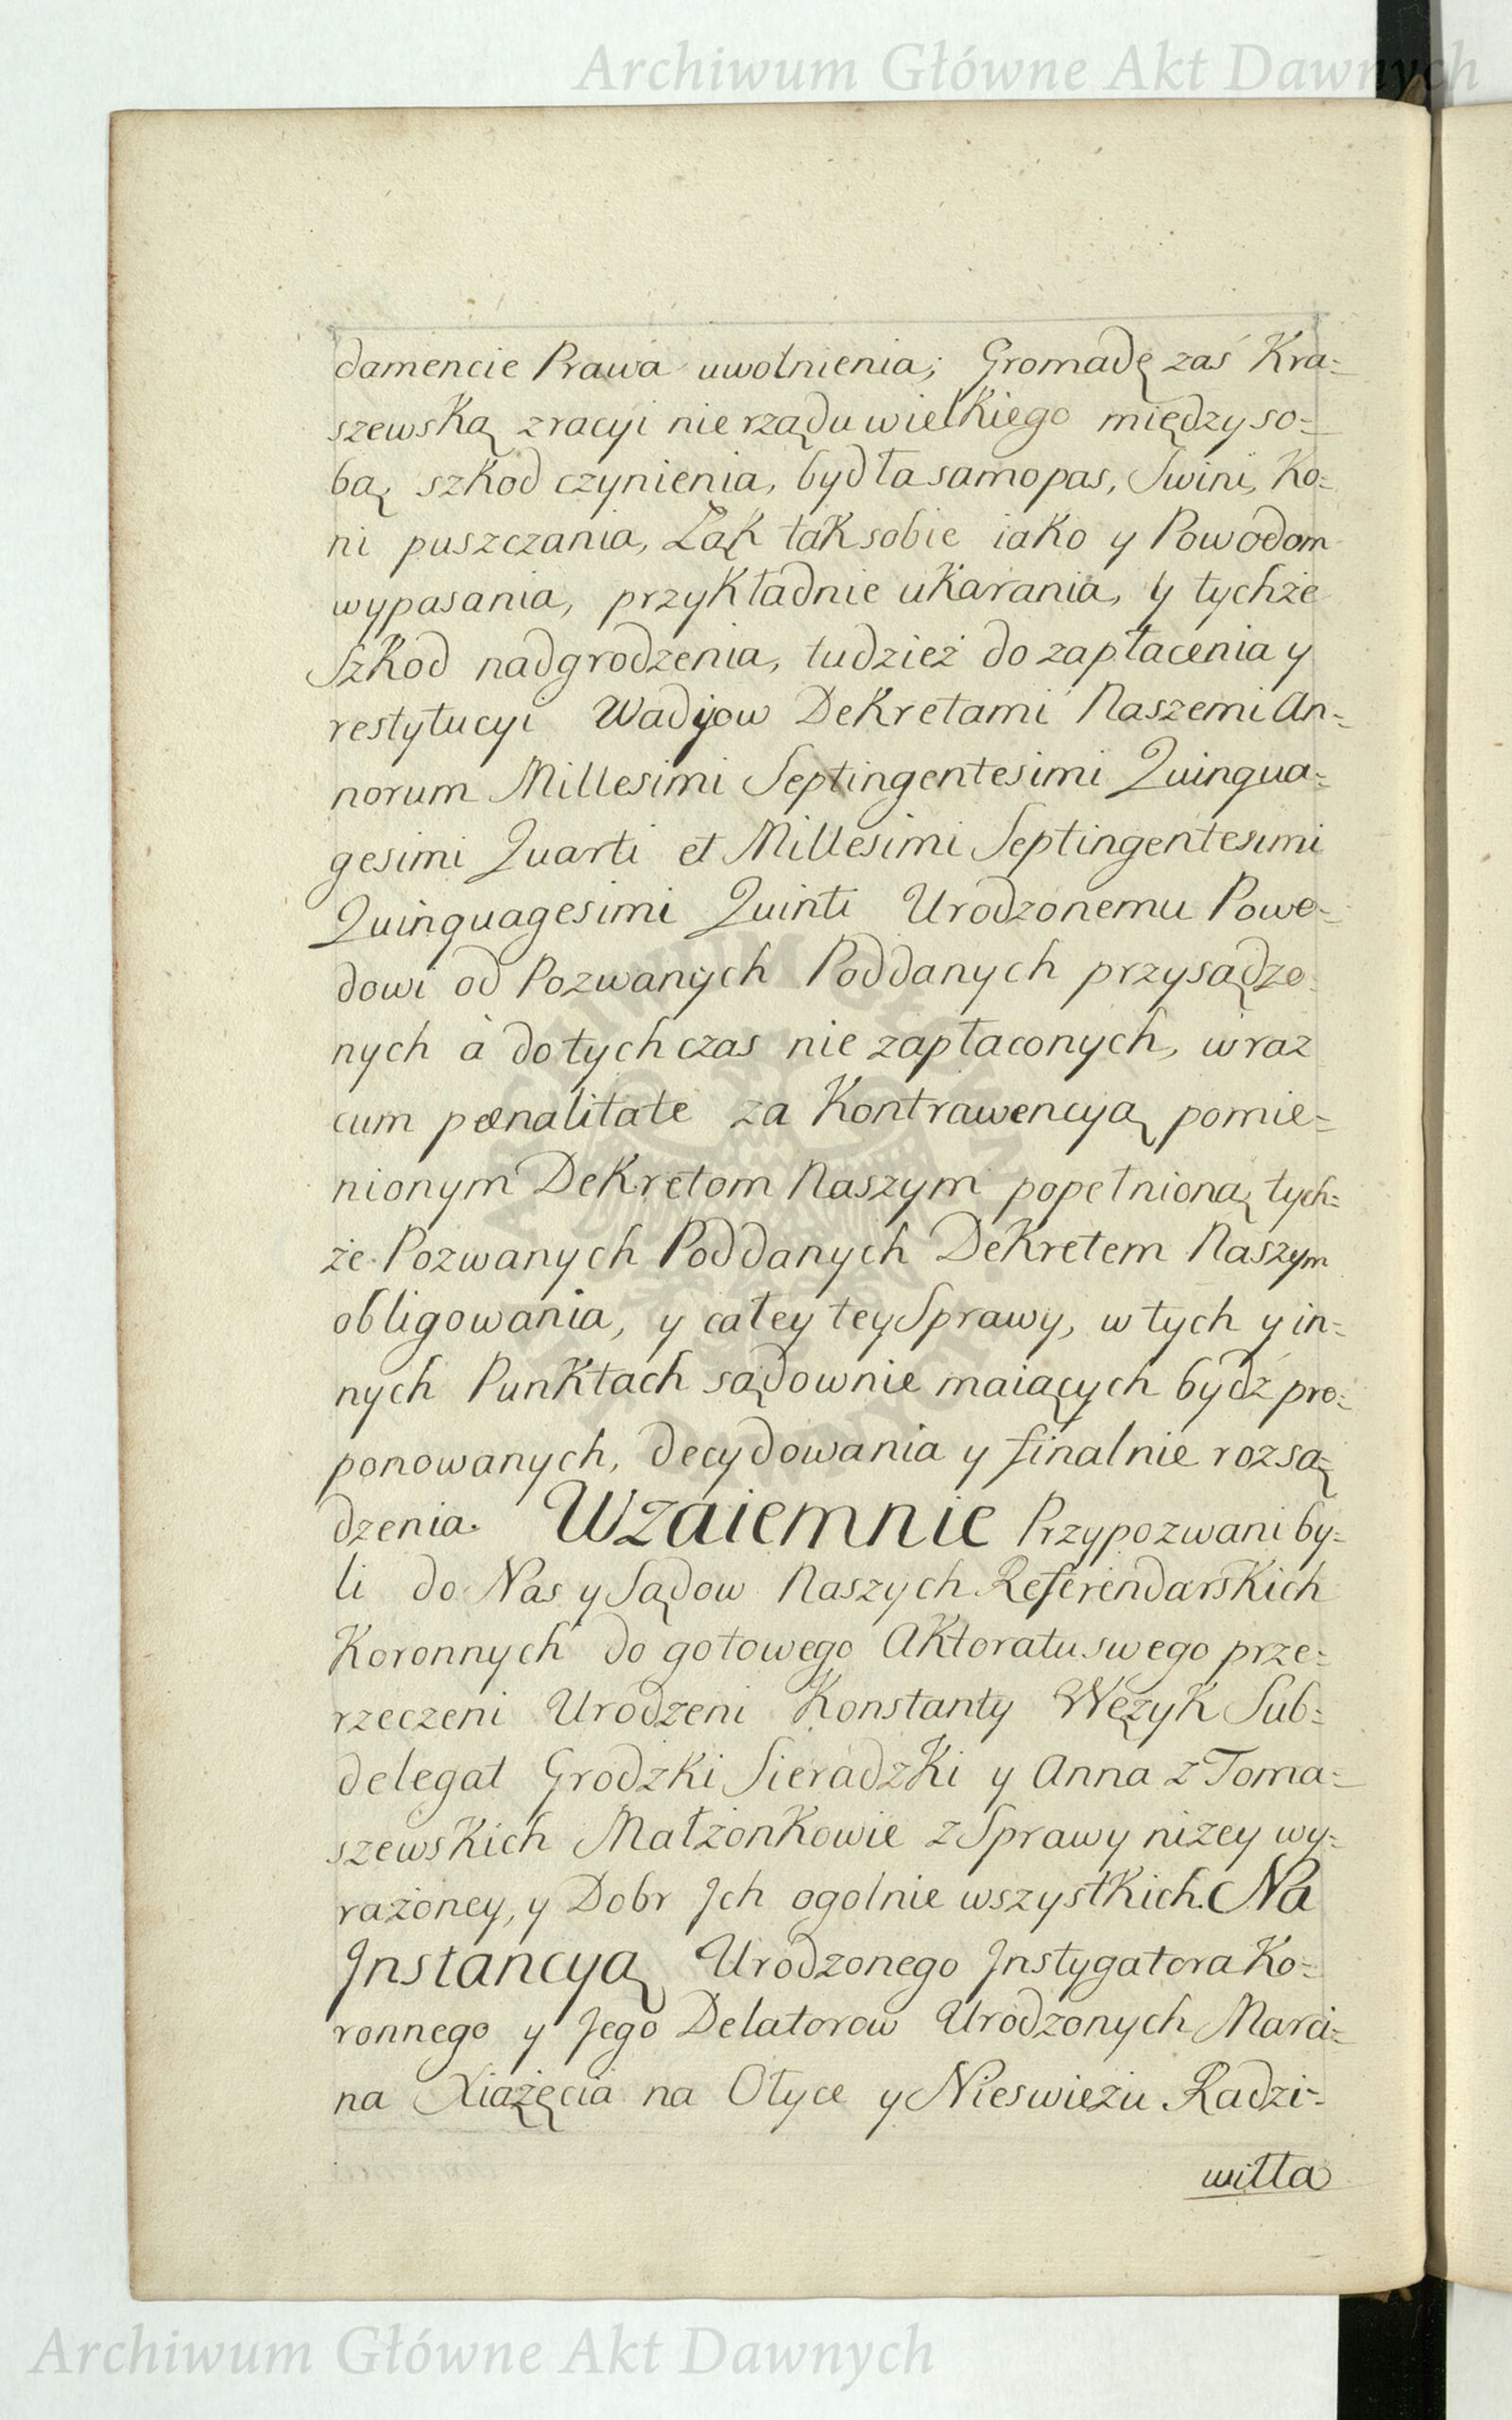 Archiwum Główne Akt Dawnych
damencie Prawa uwolnienia; Gromadę zaś Kra=
szewską z racyi nierządu wielkiego między so=
bą szkod czynienia, bydła samopas, Swini, Ko=
ni puszczania, Łąk tak sobie iako y Powodom
wypasania, przykładnie ukarania, y tychże
Szkod nadgrodzenia, tudzież do zapłacenia y
restytucyi Wadyow Dekretami Naszemi An=
norum Millesimi Septingentesimi Quinqua=
gesimi Quarti et Millesimi Septingentesimi
Quinquagesimi Quinti Urodzonemu Powo=
dowi od Pozwanych Poddanych przysądzo=
nych à dotychczas nie zapłaconych, wraz
cum pœnalitate za Kontrawencyą pomie=
nionym Dekretom Naszym popełnioną tych=
że Pozwanych Poddanych Dekretem Naszym
obligowania, y całey tey Sprawy, w tych y in=
nych Punktach sądownie maiących bydź pro=
ponowanych, decydowania y finalnie rozsą=
dzenia. Wzaiemnie Przypozwani by=
li do Nas y Sądow Naszych Referendarskich
Koronnych do gotowego Aktoratu swego prze=
rzeczeni Urodzeni Konstanty Węzyk Sub=
delegat Grodzki Sieradzki y Anna z Toma=
szewskich Małżonkowie z Sprawy niżey wy=
rażoney, y Dobr Jch ogolnie wszystkich. Na
Jnstancyą Urodzonego Jnstygatora Ko=
ronnego y Jego Delatorow Urodzonych Marci=
na Xiążęcia na Ołyce y Nieswieżu Radzi=
wiłła
Archiwum Główne Akt Dawnych